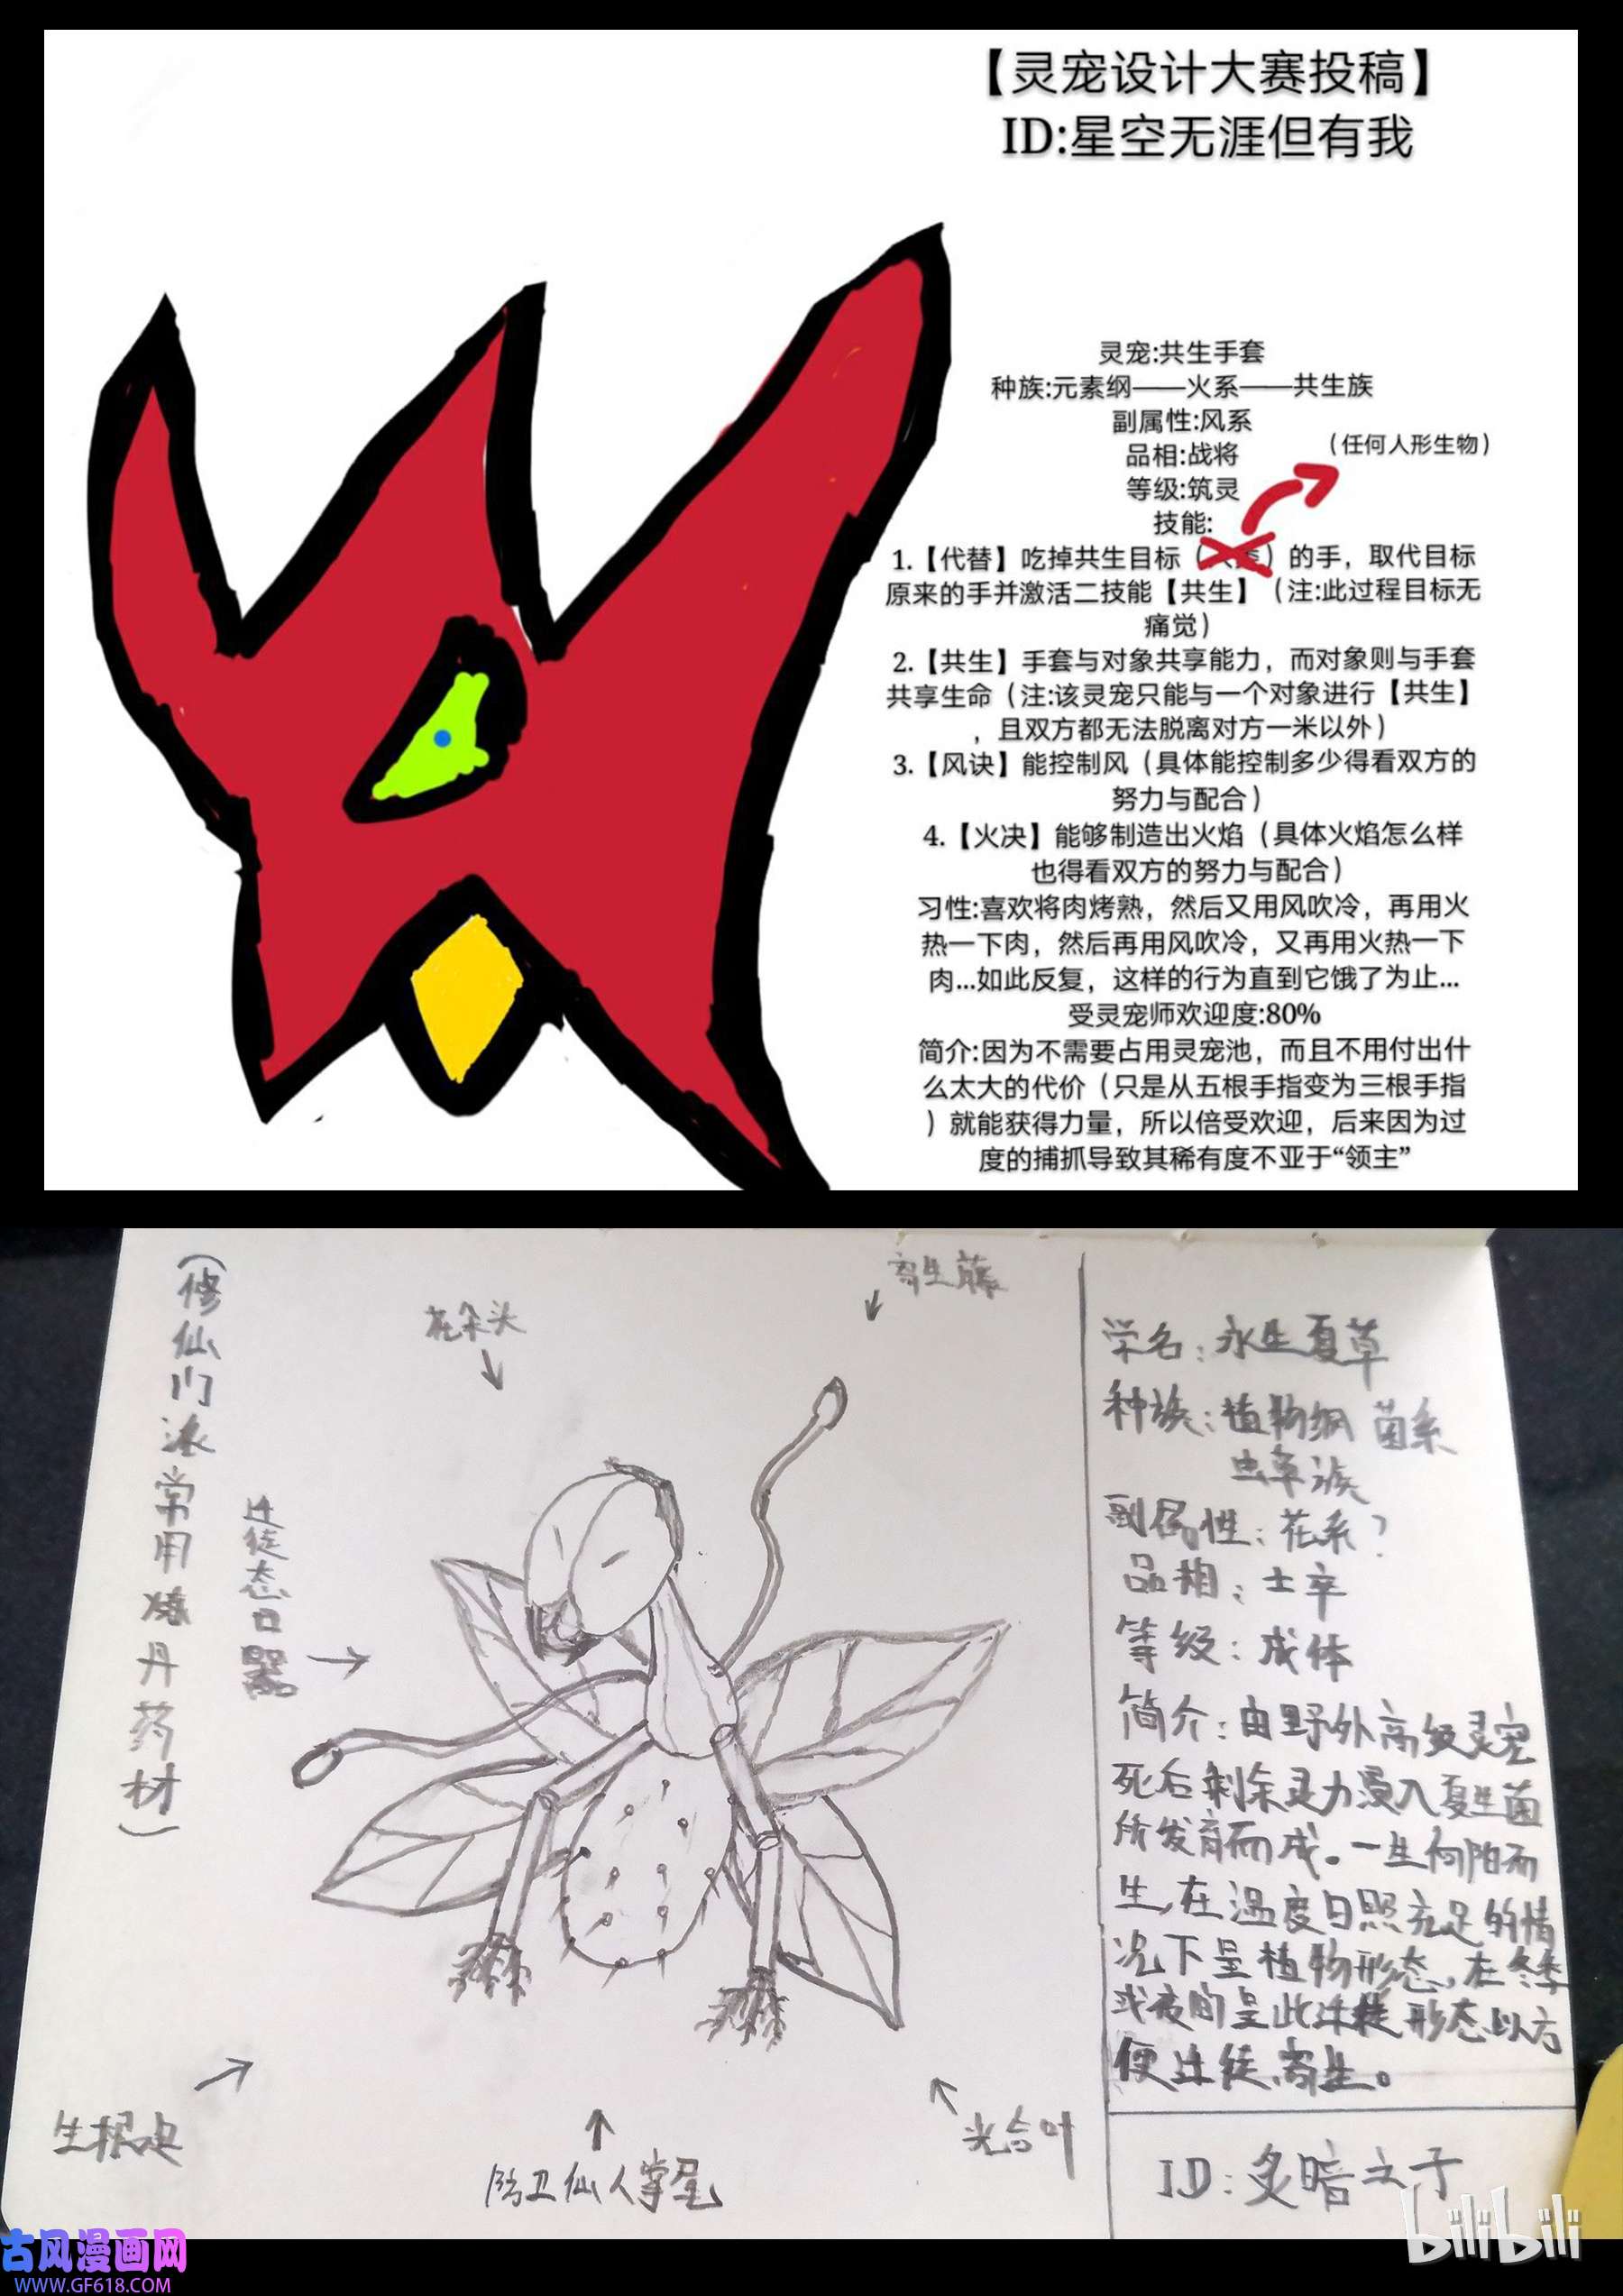 【灵宠设计大赛投稿】
ID:星空无涯但有我
灵宠:共生手套
种族:元素纲——火系——共生族
副属性:风系
品相:战将
(任何人形生物)
等级:筑灵
技能:
1.【代替】吃掉共生目标( )的手，取代目标
原来的手并激活二技能【共生】(注:此过程目标无
痛觉)
2.【共生】手套与对象共享能力，而对象则与手套
共享生命(注:该灵宠只能与一个对象进行【共生】
，且双方都无法脱离对方一米以外)
3.【风诀】能控制风(具体能控制多少得看双方的
努力与配合)
4.【火决】能够制造出火焰(具体火焰怎么样
也得看双方的努力与配合)
习性:喜欢将肉烤熟，然后又用风吹冷，再用火
热一下肉，然后再用风吹冷，又再用火热一下
肉...如此反复，这样的行为直到它饿了为止...
受灵宠师欢迎度:80%
简介:因为不需要占用灵宠池，而且不用付出什
么太大的代价(只是从五根手指变为三根手指
)就能获得力量，所以倍受欢迎，后来因为过
度的捕抓导致其稀有度不亚于“领主”
(修仙门派常用炼丹药材)
迁徒态口器
花朵头
寄生藤
生根足
防卫仙人掌尾
光合叶
学名:永生夏草
种族:植物纲 菌系
虫草族
副属性:花系?
品相:士卒
等级:成体
简介:由野外高级灵宠
死后剩余灵力浸入夏生菌
所发育而成。一生向阳而
生,在温度日照充足的情
况下呈植物形态,在冬季
或夜间呈此迁徒形态以方
便迁徒,寄生。
ID:炙暗之子
bilibili
古风漫画网
WWW.GF618.COM